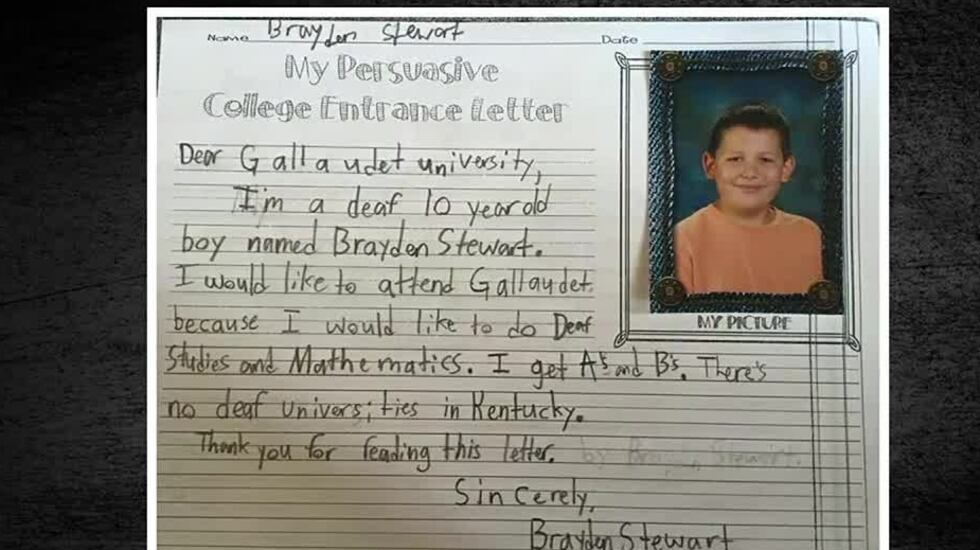 Name Brayden Stewart Date
My Persuasive
College Entrance Letter
Dear Gallaudet university,
I'm a deaf 10 year old
boy named Brayden Stewart.
I would like to attend Gallaudet.
because I would like to do Deaf
MY PICTURE
Studies and Mathematics. I get A's and B's. There's
no deaf universities in Kentucky.
Thank you for reading this letter. by Brayden Stewart.
Sincerely,
Brayden Stewart